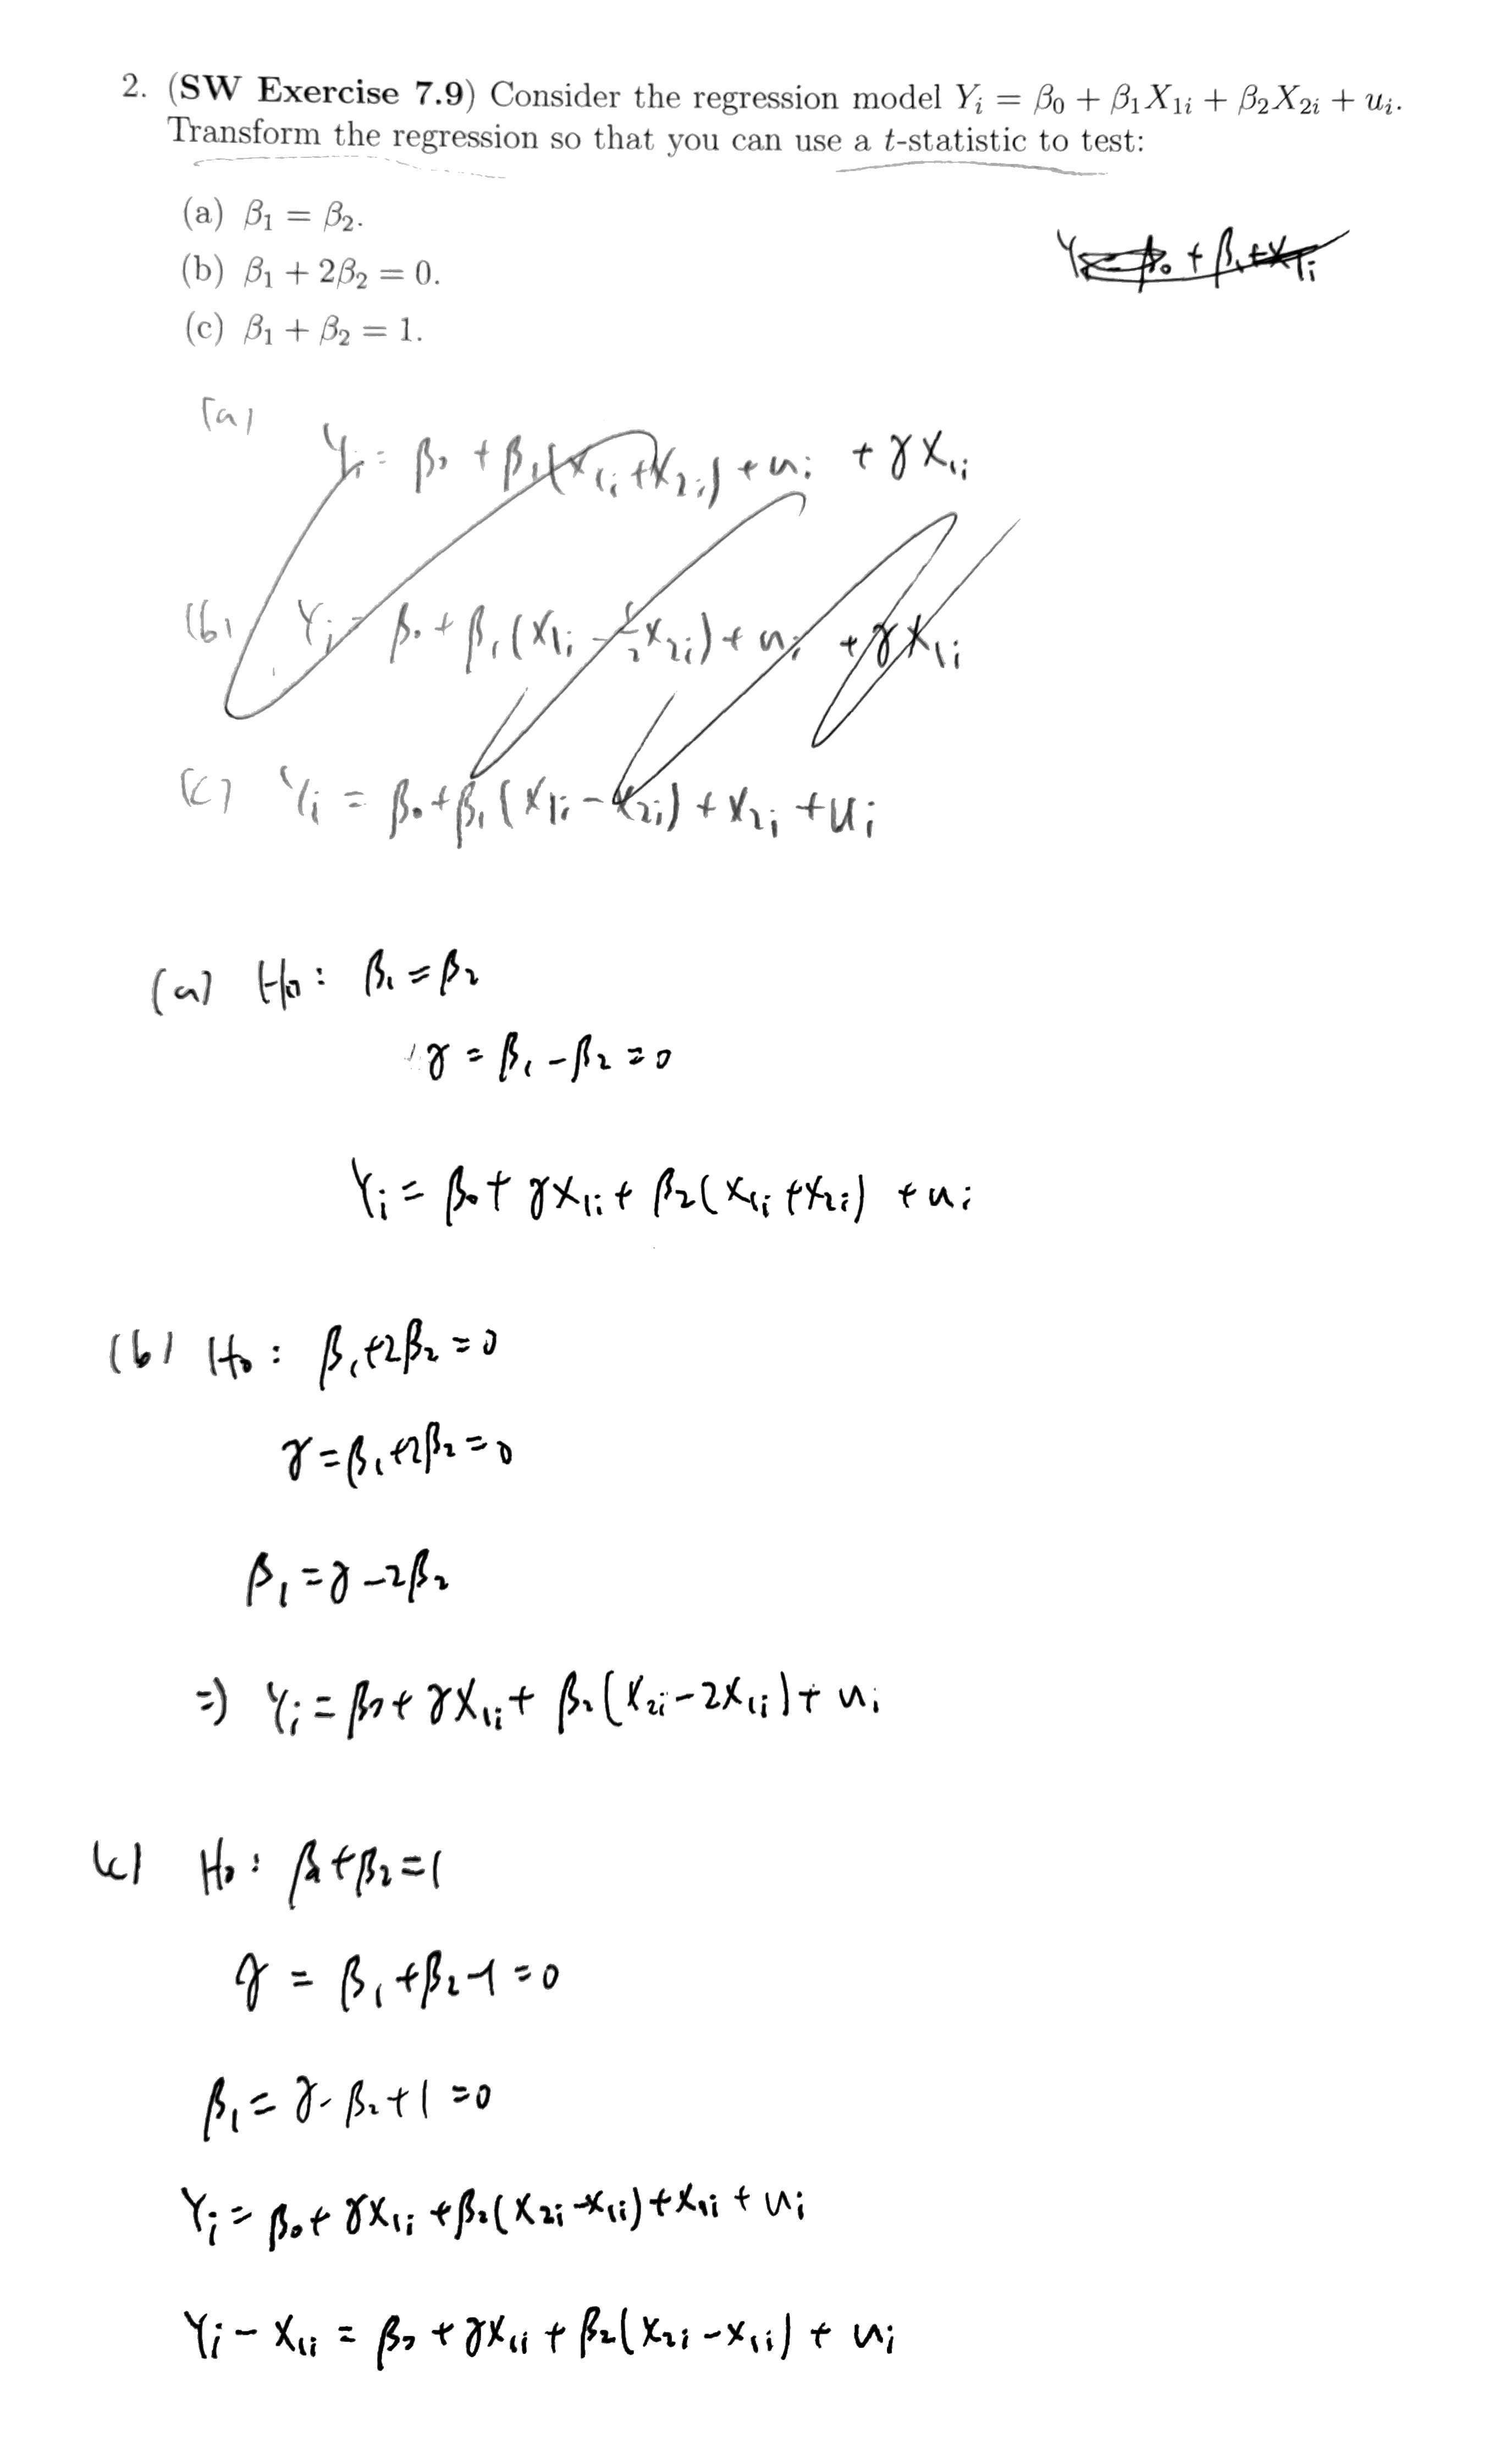 2. (SW Exercise 7.9) Consider the regression model Yᵢ = β₀ + β₁X₁ᵢ + β₂X₂ᵢ + uᵢ.
Transform the regression so that you can use a t-statistic to test:
(a) β₁ = β₂.
(b) β₁ + 2β₂ = 0.
(c) β₁ + β₂ = 1.
(a) Yᵢ = β₀ + β₁(X₁ᵢ + X₂ᵢ) + uᵢ + γX₁ᵢ
(b) Yᵢ = β₀ + β₁(X₁ᵢ - ½X₂ᵢ) + uᵢ + γX₁ᵢ
(c) Yᵢ = β₀ + β₁(X₁ᵢ - X₂ᵢ) + X₂ᵢ + uᵢ
(a) H₀: β₁ = β₂
γ = β₁ - β₂ = 0
Yᵢ = β₀ + γX₁ᵢ + β₂(X₁ᵢ + X₂ᵢ) + uᵢ
(b) H₀: β₁ + 2β₂ = 0
γ = β₁ + 2β₂ = 0
β₁ = γ - 2β₂
=) Yᵢ = β₀ + γX₁ᵢ + β₂(X₂ᵢ - 2X₁ᵢ) + uᵢ
(c) H₀: β₁ + β₂ = 1
γ = β₁ + β₂ - 1 = 0
β₁ = γ - β₂ + 1 = 0
Yᵢ = β₀ + γX₁ᵢ + β₂(X₂ᵢ - X₁ᵢ) + X₁ᵢ + uᵢ
Yᵢ - X₁ᵢ = β₀ + γX₁ᵢ + β₂(X₂ᵢ - X₁ᵢ) + uᵢ